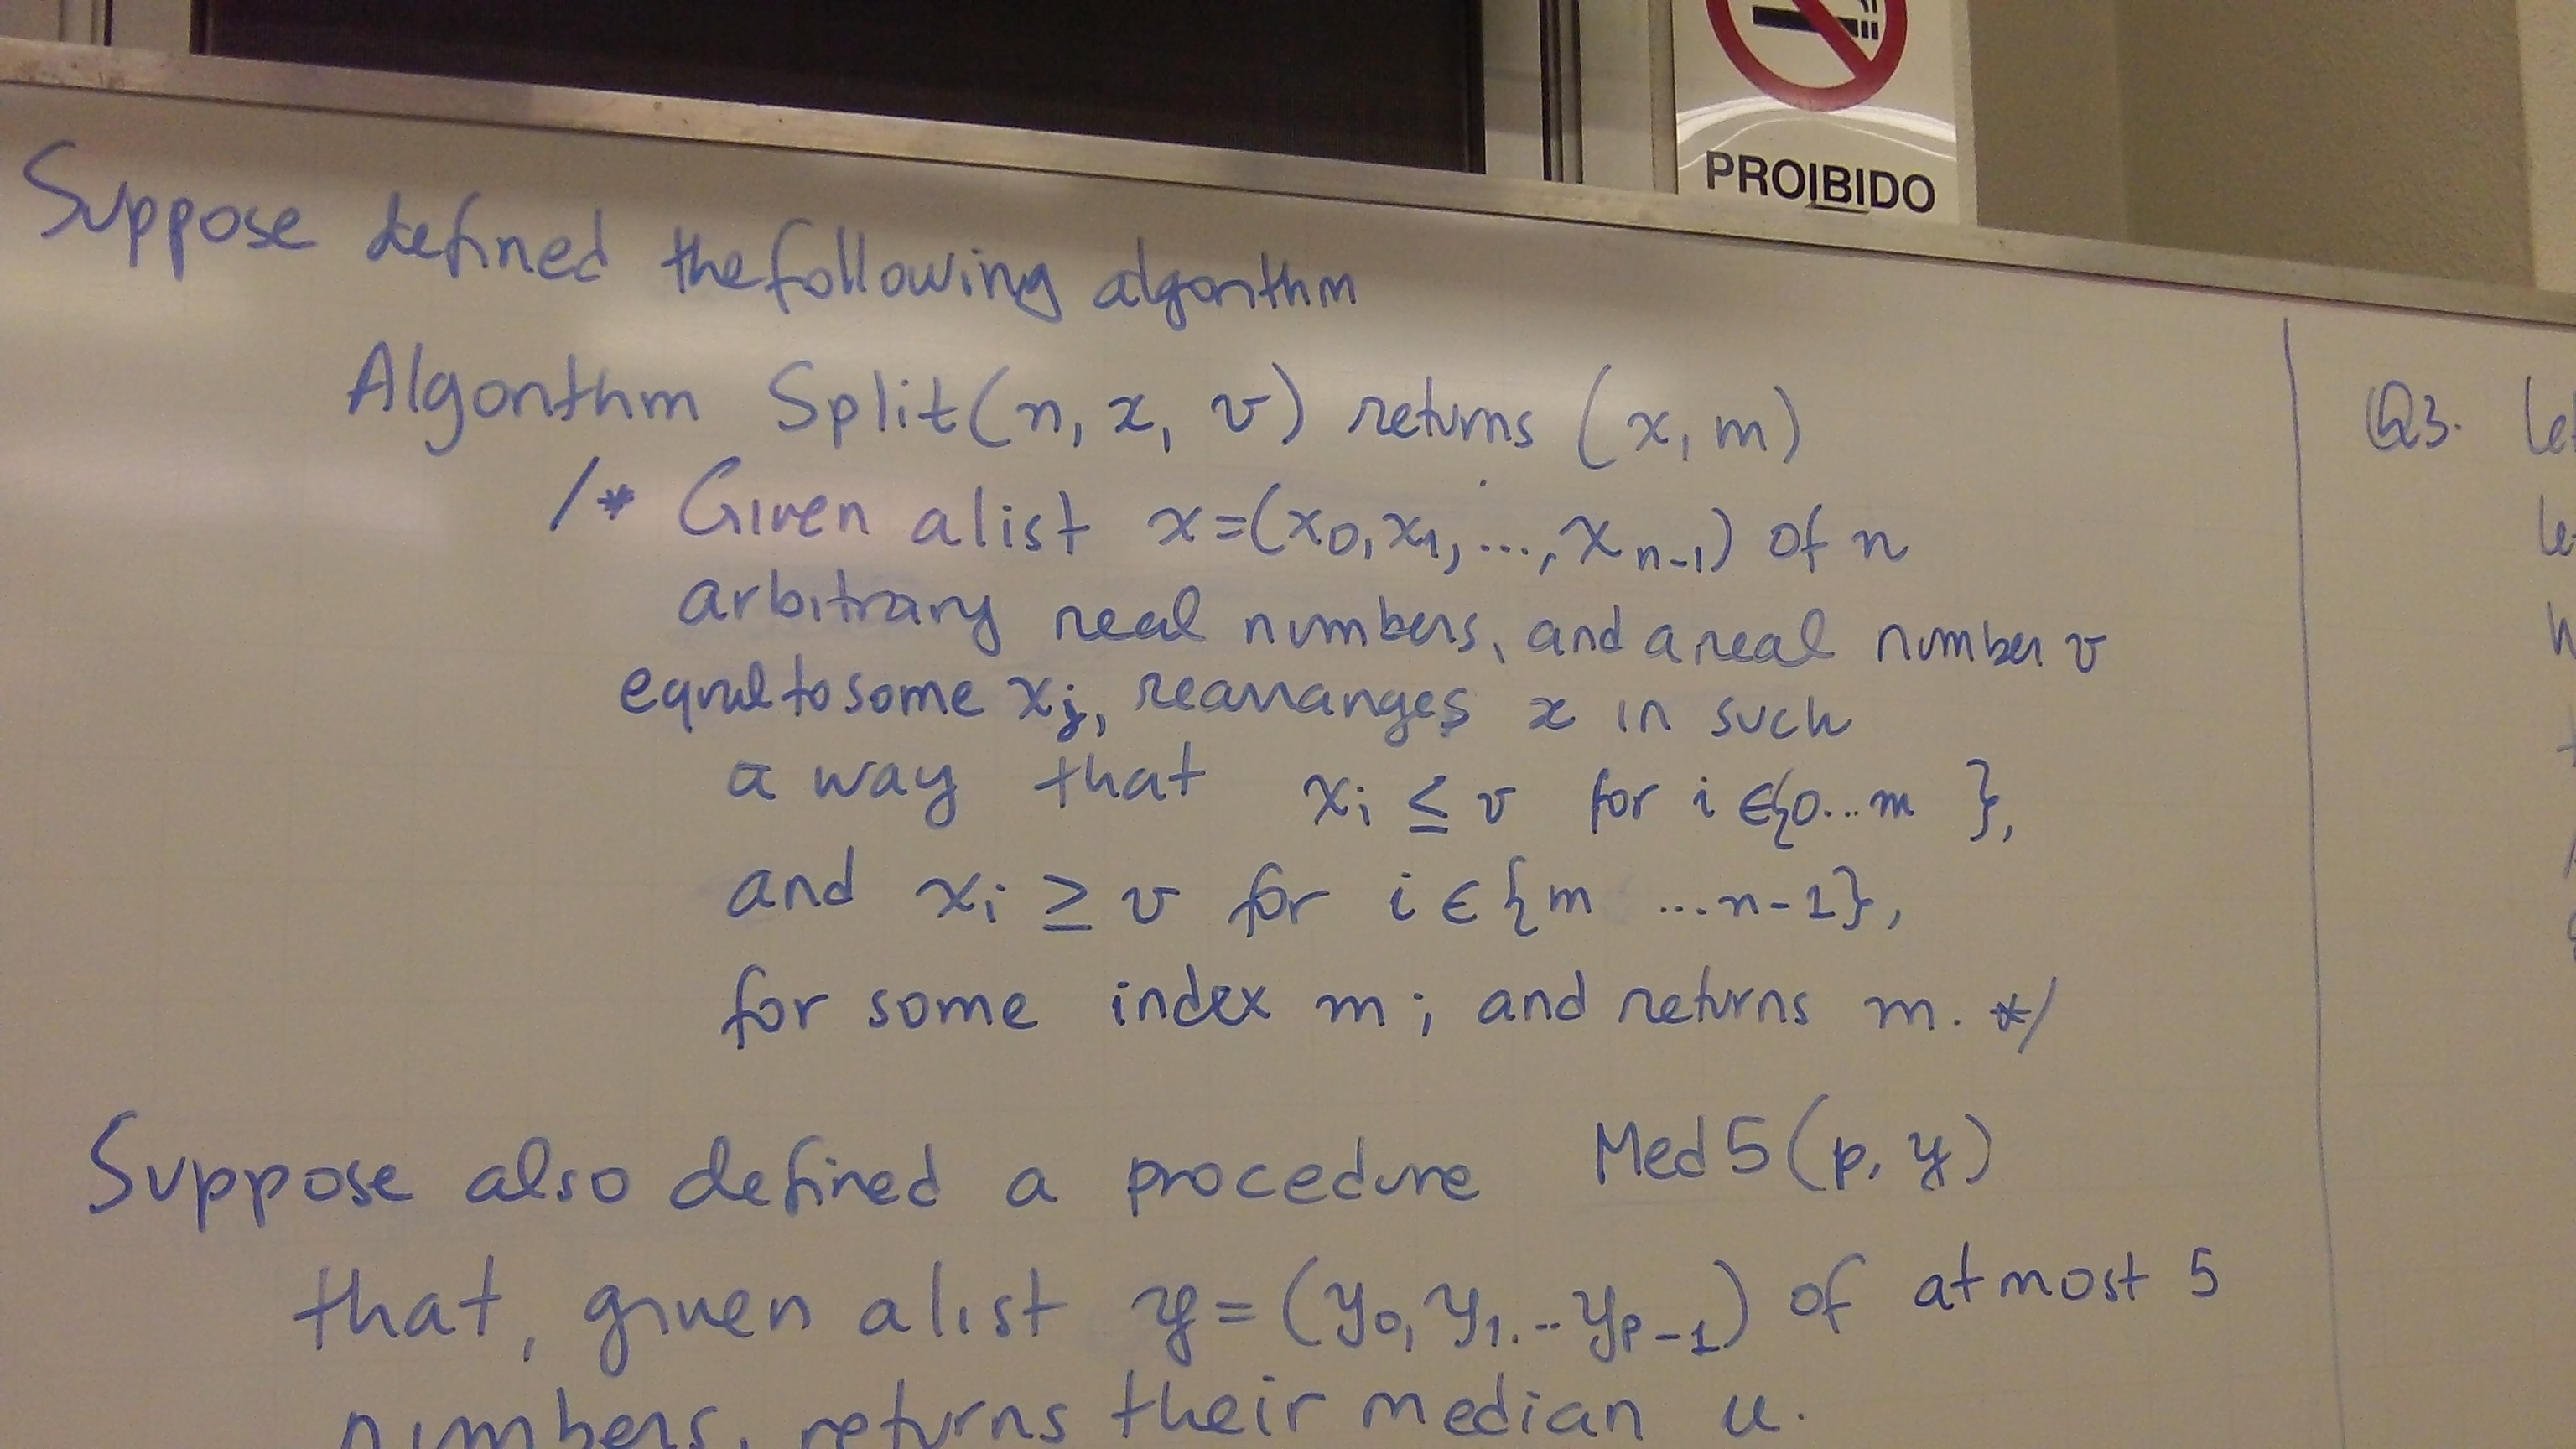 PROIBIDO
Suppose defined the following algorithm
Algorithm Split(n, x, v) returns (x, m)
/* Given a list x=(x₀,x₁,...,xₙ₋₁) of n
arbitrary real numbers, and a real number v
equal to some xⱼ, rearranges x in such
a way that xᵢ ≤ v for i ∈{0...m },
and xᵢ ≥ v for i ∈ {m ...n-1},
for some index m; and returns m. */
Suppose also defined a procedure Med5(p, y)
that, given a list y = (y₀, y₁...yₚ₋₁) of at most 5
numbers, returns their median u.
Q3.